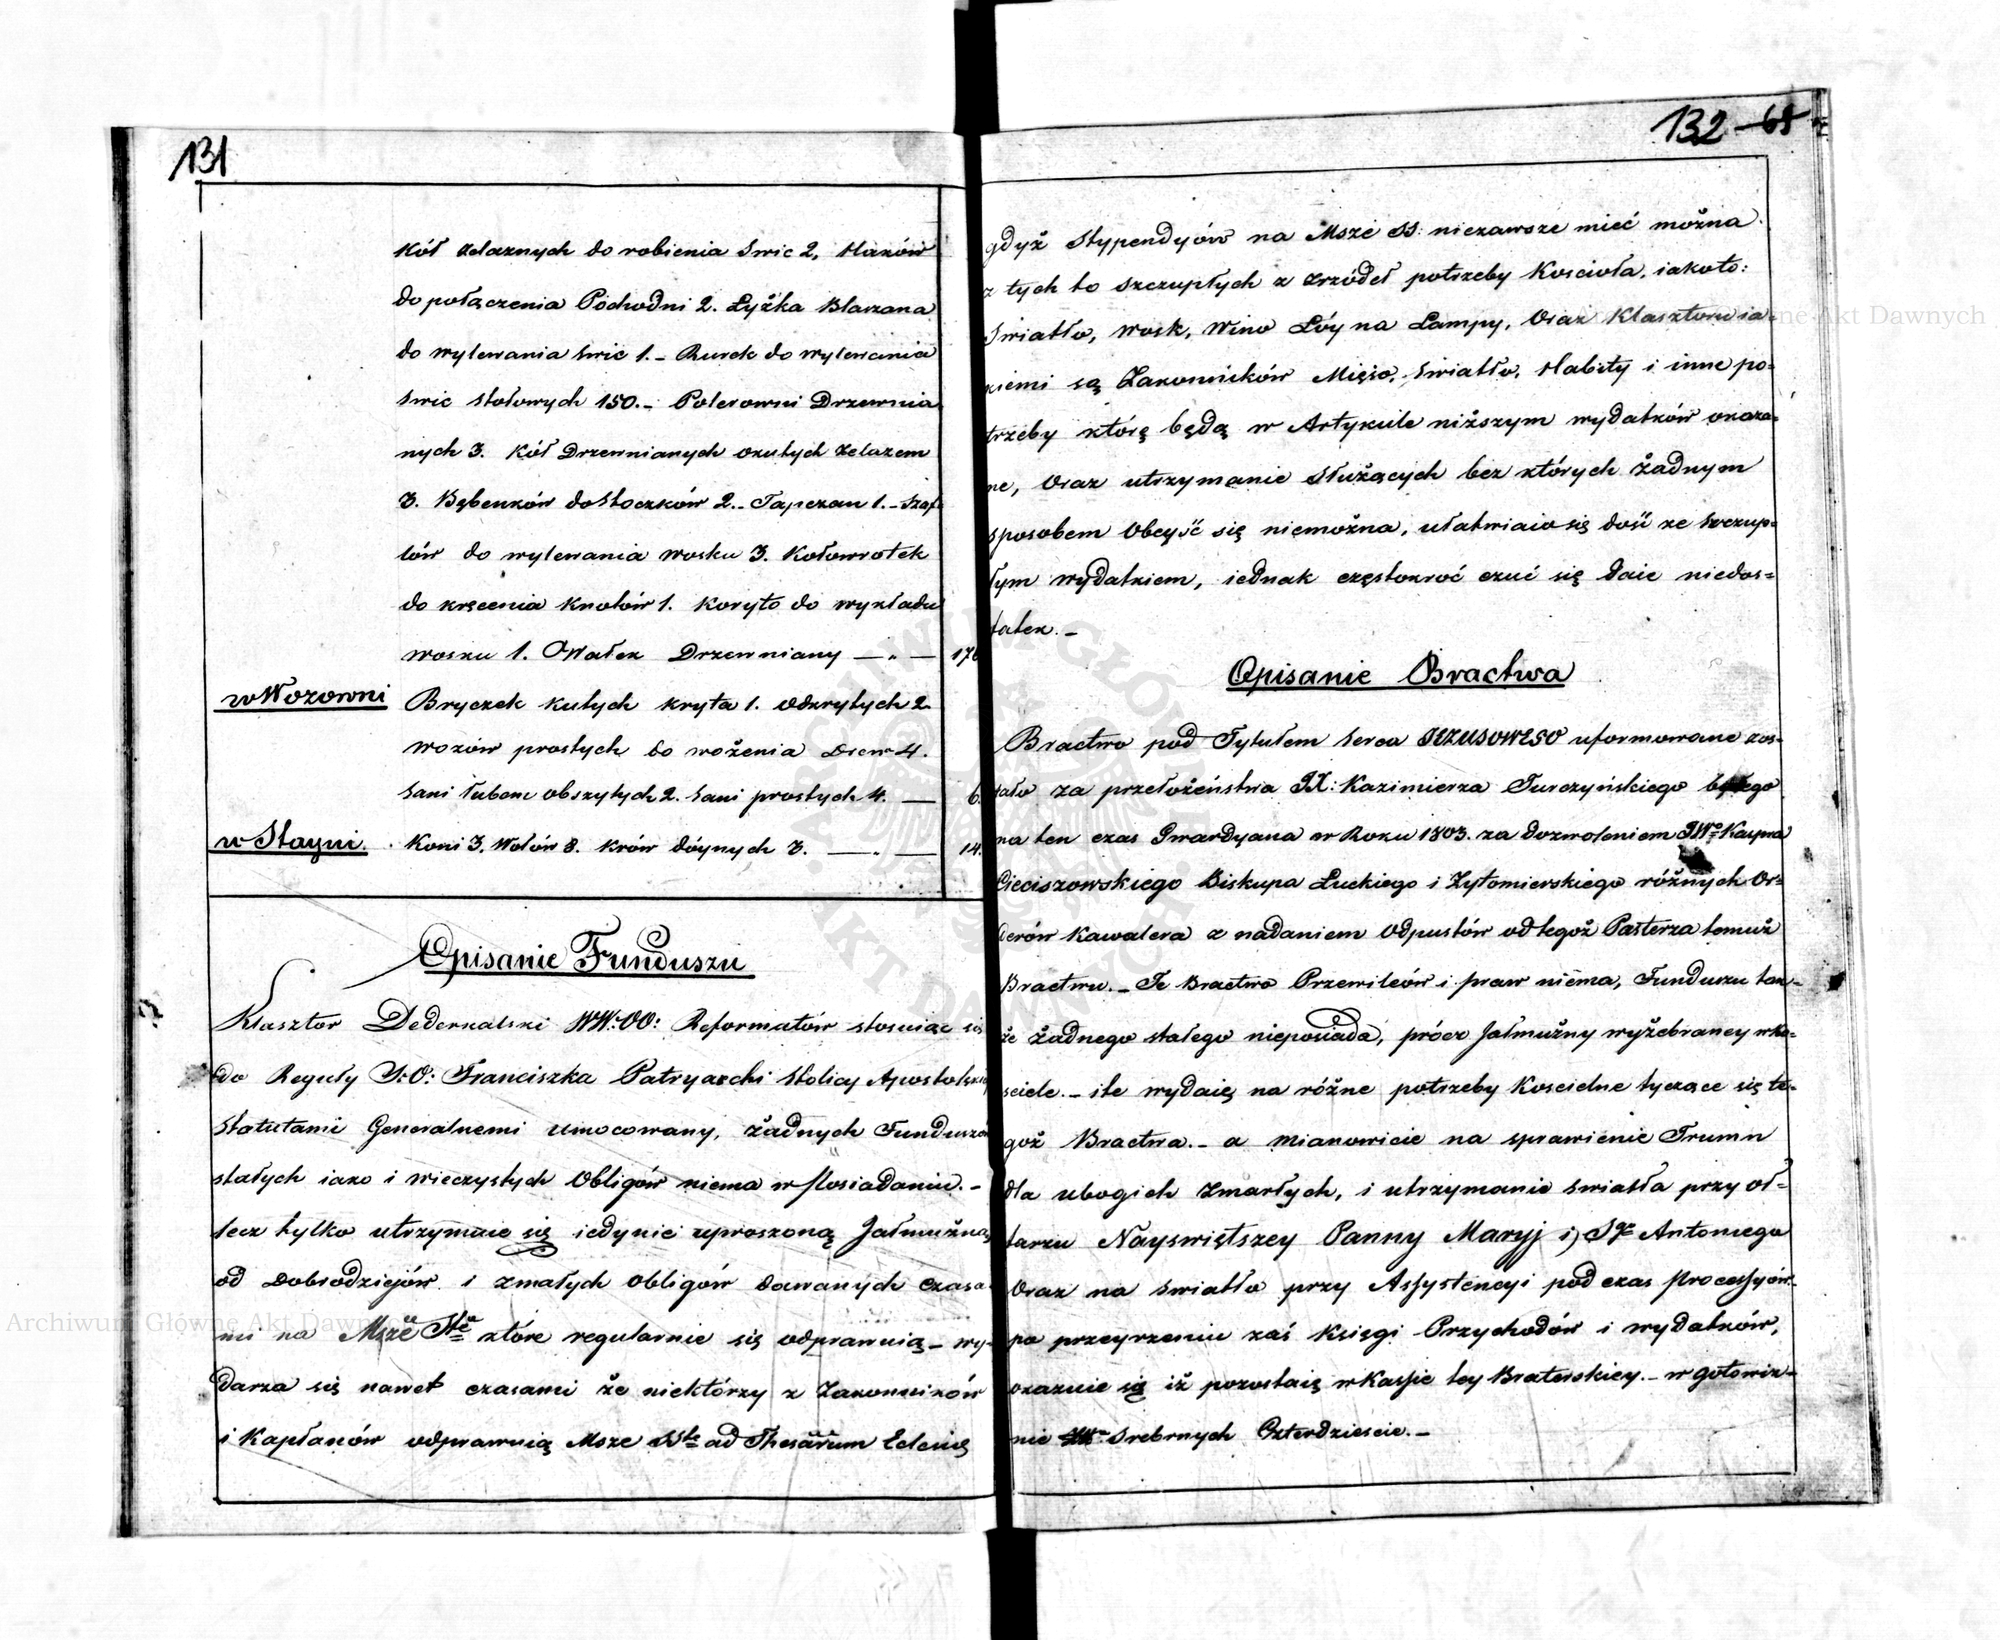 131
Kół żelaznych do robienia Swic 2, Haków
do połączenia Pochodni 2. Łyżka Blaszana
do wylewania swic 1._ Rurek do wylewania
Swic stołowych 150._ Polerowni Drzewnia
nych 3. Kół Drzewnianych okutych żelazem
3. Bębenków do Stoczków 2._ Tapczan 1._ Szaf
lów do wylewania wosku 3. Kołowrotek
do kręcenia Knotów 1. Koryto do wykładu
wosku 1. Wałek Drzewniany — „ — 176
w Wozowni Bryczek kutych kryta 1. odkrytych 2.
wozów prostych do wożenia Drew 4.
Sani łubem obszytych 2. Sani prostych 4. — 6.
w Stayni. Koni 3. Wołów 8. Krów dóynych 3. — „ — 14.
Opisanie Funduszu
Klasztor Dederkalski WW: OO: Reformatów stosuiąc się
do Reguły S: O: Franciszka Patryarchi Stolicy Apostolskiej
Statutami Generalnemi umocowany, żadnych Funduszów
stałych iako i wieczystych Obligów niema w Posiadaniu._
lecz tylko utrzymuie się iedynie uproszoną Jałmużną
od Dobrodziejów i z małych obligów dawanych czasa-
mi na Msze Ste które regularnie się odprawuią_ wy-
darza się nawet czasami że niektórzy z Zakonników
i Kapłanów odprawuią Msze SSte ad Thesaurum Eclesię
132 68
gdyż Stypendyów na Msze SS: niezawsze mieć można
z tych to szczupłych z źródeł potrzeby Kościoła, iakoto:
Swiatło, wosk, Wino Łóy na Lampy, Oraz Klasztoru ia-
kiemi są Zakonników Mięso, Swiatło, Habity i inne po-
trzeby które będą w Artykule niższym wydatków okaza-
ne, Oraz utrzymanie Służących bez których żadnym
sposobem Obeyść się niemożna, ułatwiaio się dość ze szczup-
łym wydatkiem, iednak częstokroć czuć się daie niedos-
tatek._
Opisanie Bractwa
Bractwo pod Tytułem Serca JEZUSOWEGO uformowane zos-
tało za przełożeństwa JX: Kazimierza Turczyńskiego byłego
na ten czas Gwardyana w Roku 1803. za dozwoleniem JWo Kaspra
Cieciszowskiego Biskupa Łuckiego i Żytomierskiego różnych Or-
derów Kawalera z nadaniem Odpustów od tegoż Pasterza temuż
Bractwu._ Te Bractwo Przewileów i praw niema, Funduszu tak-
że żadnego stałego nieposiada, prócz Jałmużny wyżebraney w Ko-
sciele._ ile wydaię na różne potrzeby Koscielne tyczące się te-
goż Bractwa._ a mianowicie na sprawienie Trumn
dla ubogich zmarłych, i utrzymanie swiatła przy oł-
tarzu Nayswiętszey Panny Maryj i Sgo Antoniego
Oraz na swiatło przy Assystencyi podczas Processyów.
po przeyrzeniu zaś Księgi Przychodów i wydatków,
okazuie się iż pozostaię w Kassie tey Braterskiey._ w gotowiz-
nie Srebrnych Czterdzieście._
Archiwum Główne Akt Dawnych